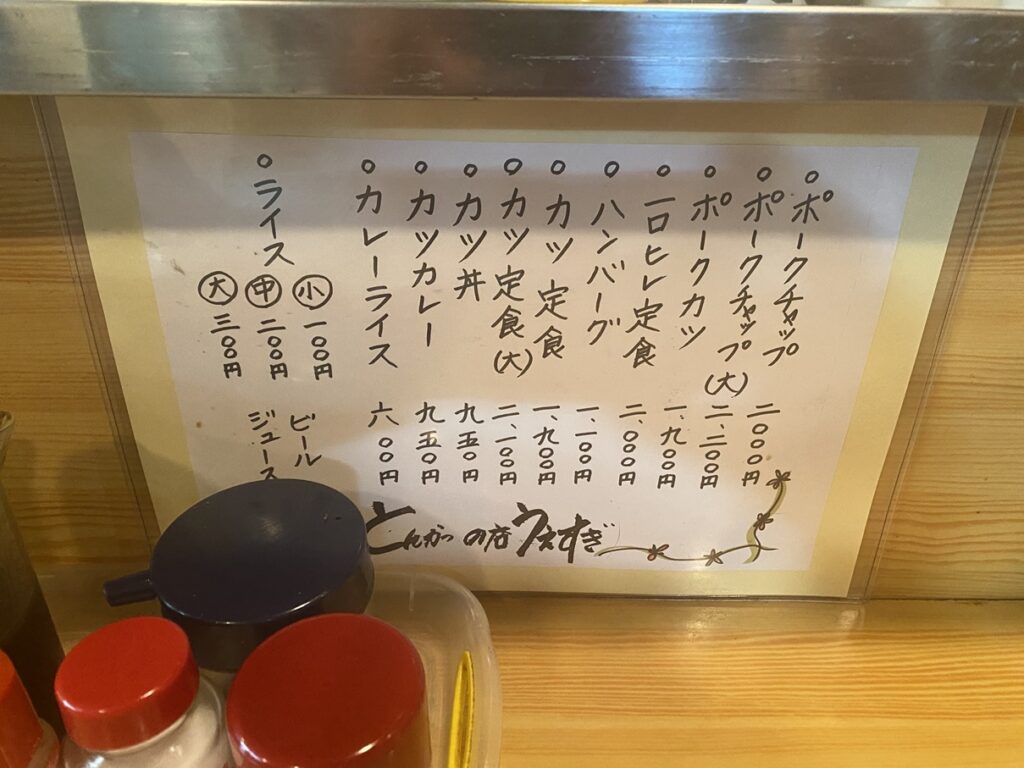 ○ポークチャップ 二〇〇〇円
○ポークチャップ(大) 二、二〇〇円
○ポークカツ 一、九〇〇円
○一口ヒレ定食 二、〇〇〇円
○ハンバーグ 一、一〇〇円
○カツ定食 一、九〇〇円
○カツ定食(大) 二、一〇〇円
○カツ丼 九五〇円
○カツカレー 九五〇円
○カレーライス 六〇〇円
○ライス
小 一〇〇円
中 二〇〇円
大 三〇〇円
ビール
ジュース
とんかつの店 うえすぎ